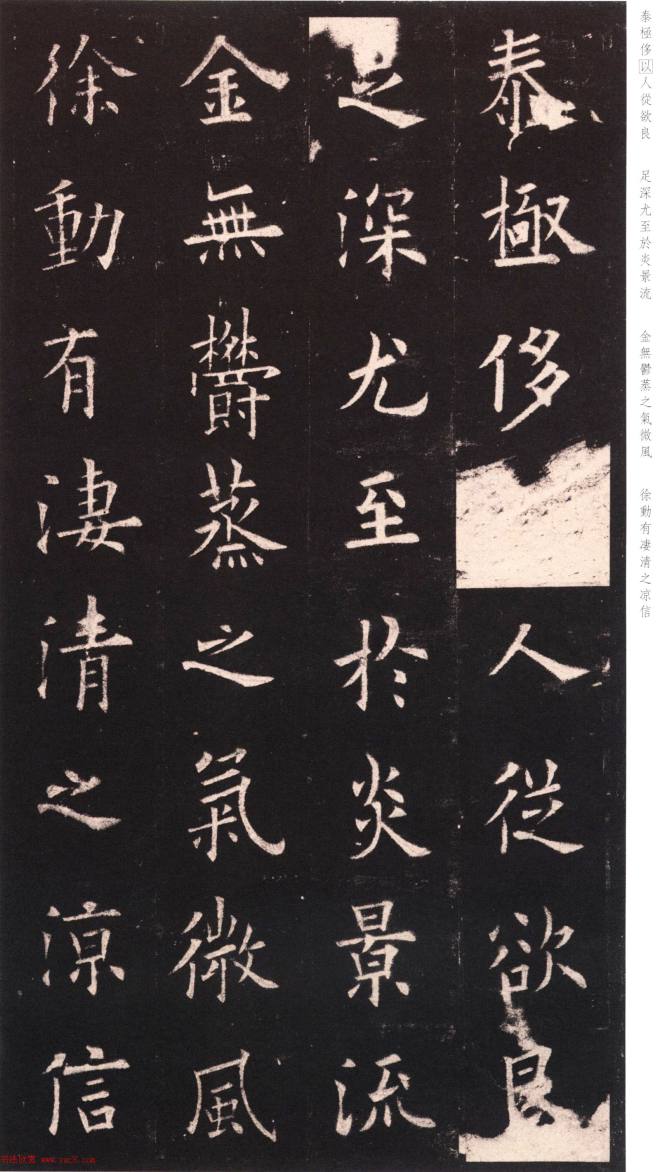 泰極侈以人從欲良 足深尤至於炎景流 金無鬱蒸之氣微風 徐動有凄清之凉信
泰極侈人從欲良
足深尤至於炎景流
金無鬱蒸之氣微風
徐動有淒清之涼信
书法欣赏 www.yac8.com